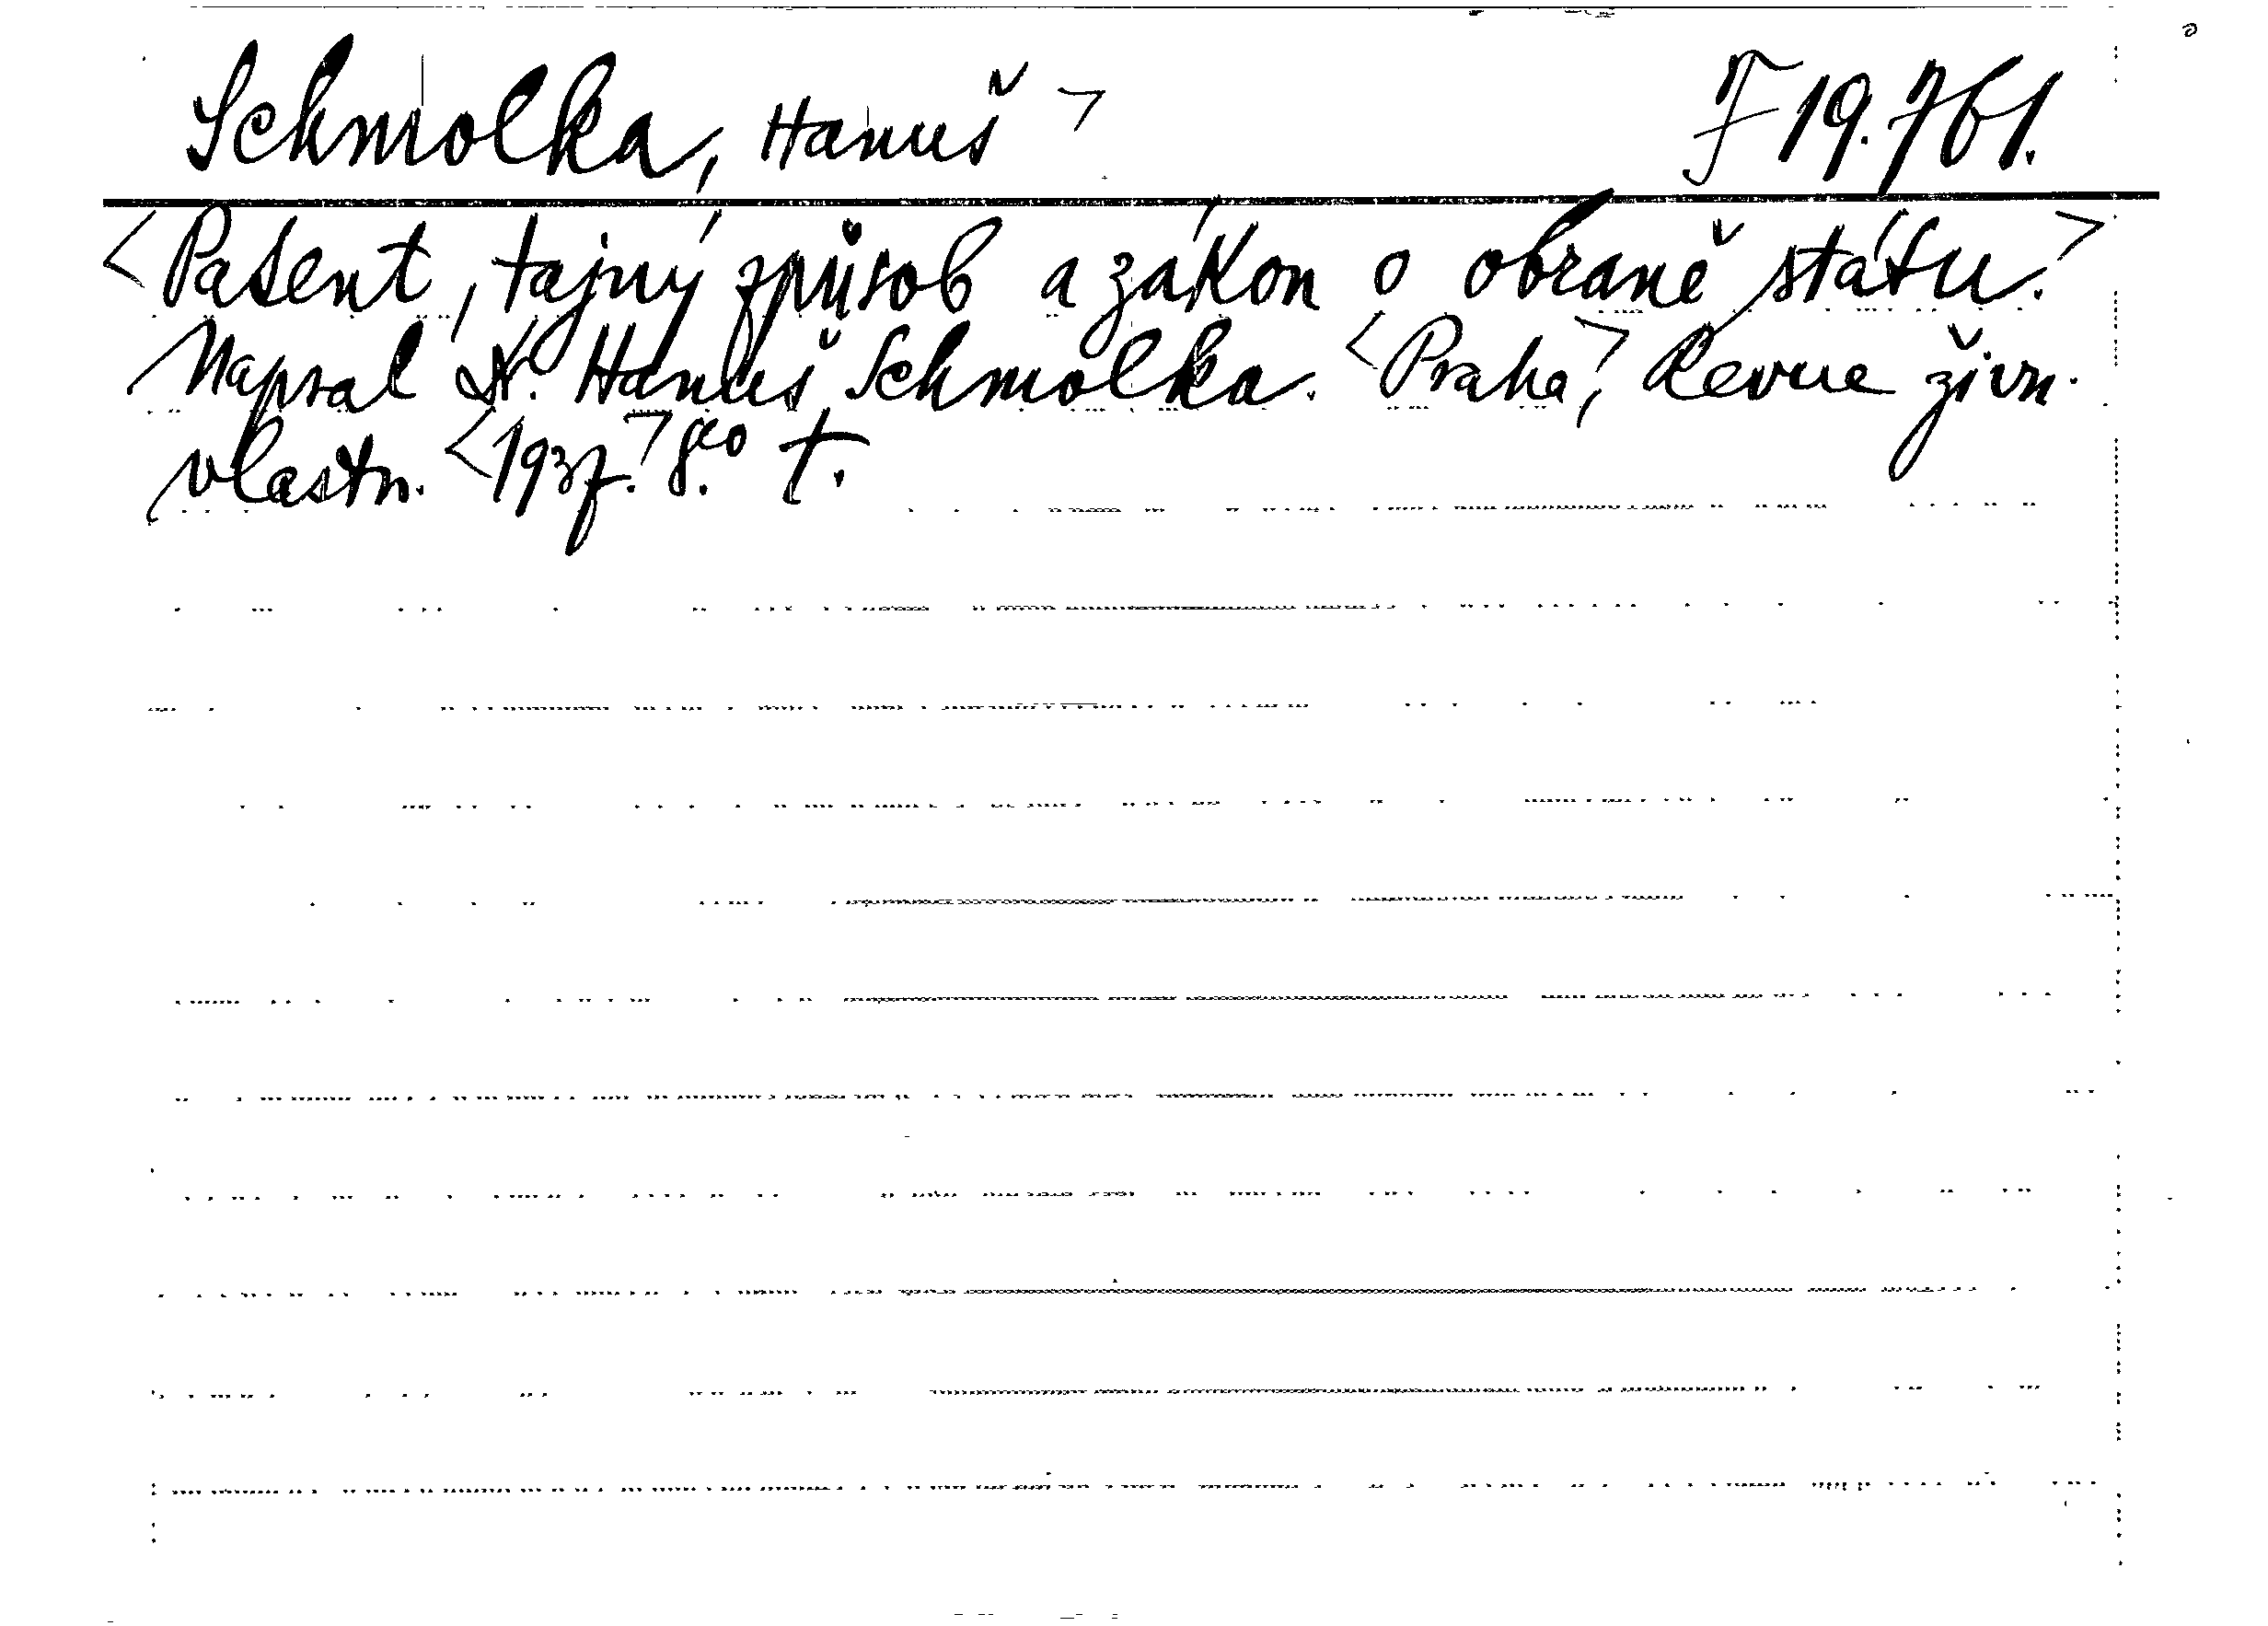 Schmolka, Hanuš > F 19.761.
<Patent, tajný způsob a zákon o obraně státu.>
Napsal Dr. Hanuš Schmolka. <Praha,> Revue živn.
vlastn. <1937.> 8.º †.